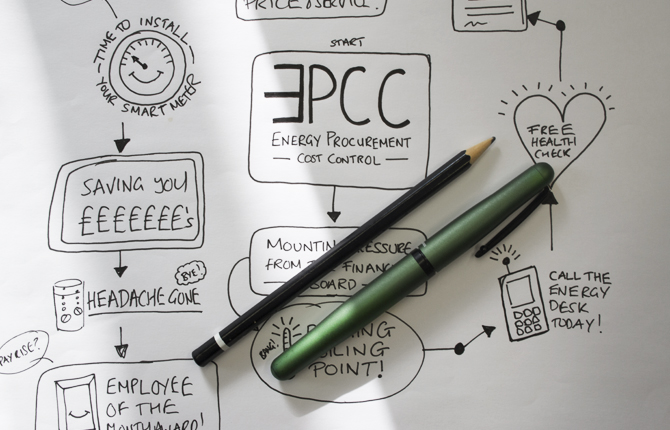 PRICE & SERVICE!
TIME TO INSTALL
YOUR SMART METER
START
EPCC
ENERGY PROCUREMENT
COST CONTROL
FREE
HEALTH
CHECK
SAVING YOU
£££££££'s
MOUNTIN PRESSURE
FROM FINANC
BOARD
BYE!
HEADACHE GONE
CALL THE
ENERGY
DESK
TODAY!
PAYRISE?
BANG!
ING
ILING
POINT!
EMPLOYEE
OF THE
MONTH AWARD!